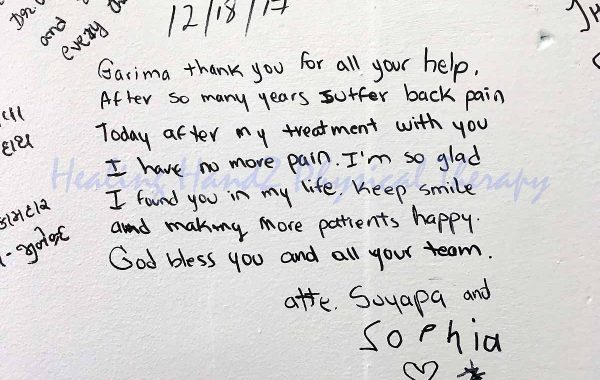 and
every
12/18/17
Garima thank you for all your help.
After so many years suffer back pain
Today after my treatment with you
I have no more pain. I'm so glad
I found you in my life. Keep smile
and making more patients happy.
God bless you and all your team.
atte. Suyapa and
Sophia
Healing Handz Physical Therapy